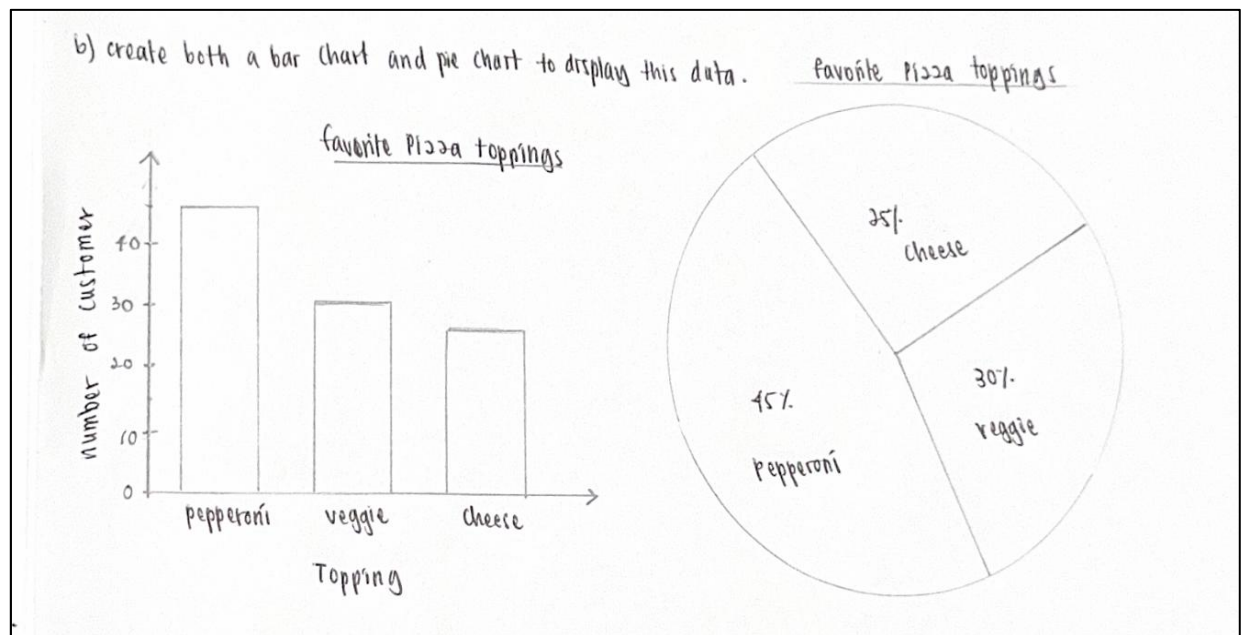 b) create both a bar chart and pie chart to display this data.
favorite pizza toppings
favorite pizza toppings
number of customer
40
30
20
10
0
pepperoni veggie cheese
Topping
25%
cheese
30%
veggie
45%
pepperoni